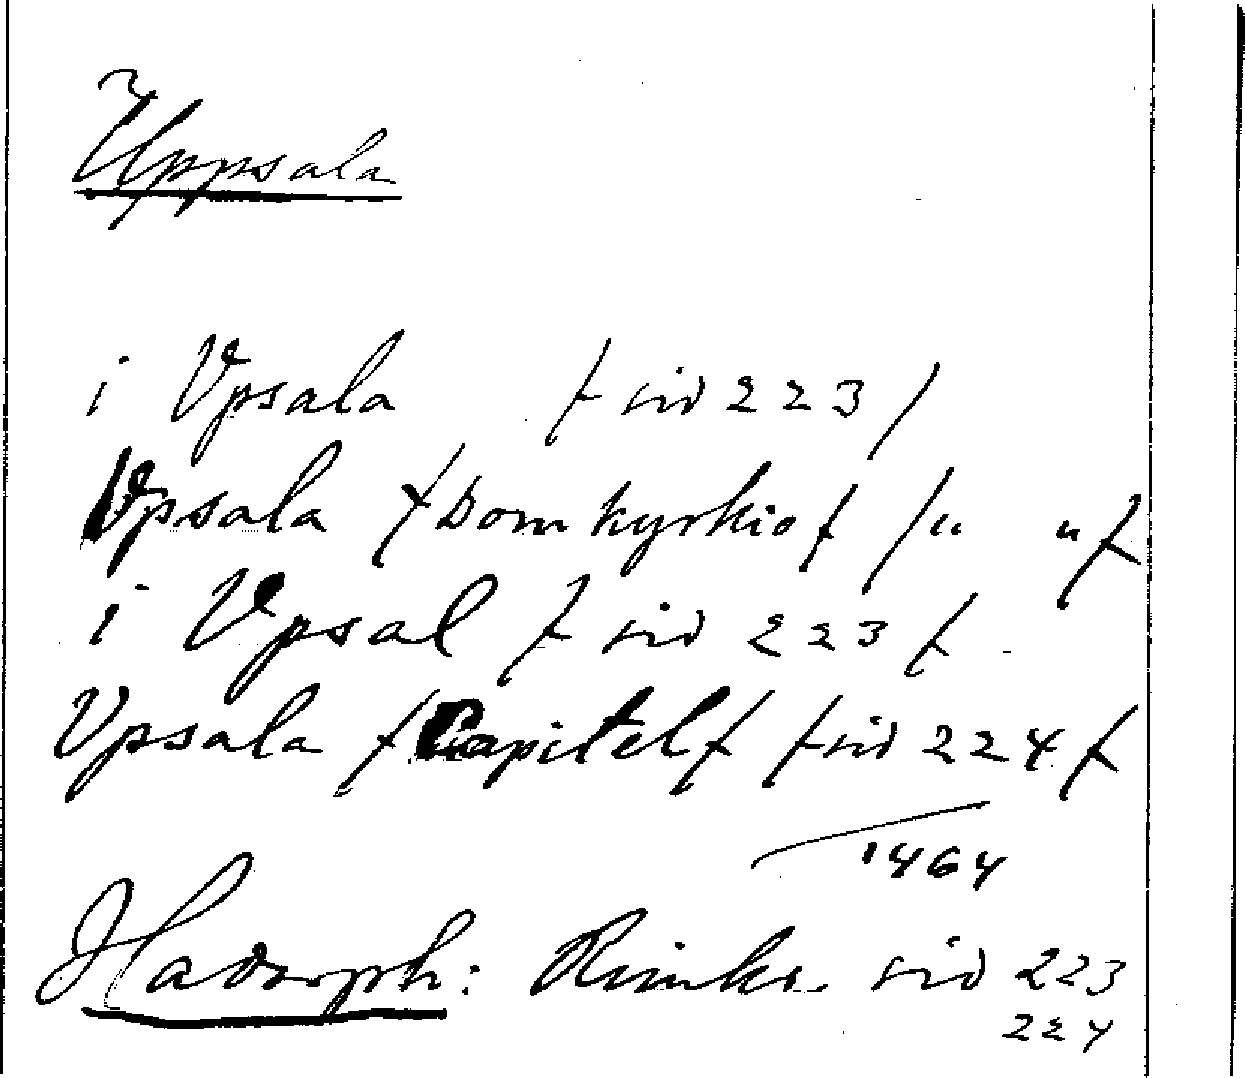 Uppsala
i Vpsala / sid 223 /
Vpsala / Domkyrkio / / " " /
i Vpsal / sid 223 /
Vpsala / Capitel / / sid 224 /
1464
Hadorph: Rimkr. sid 223
224